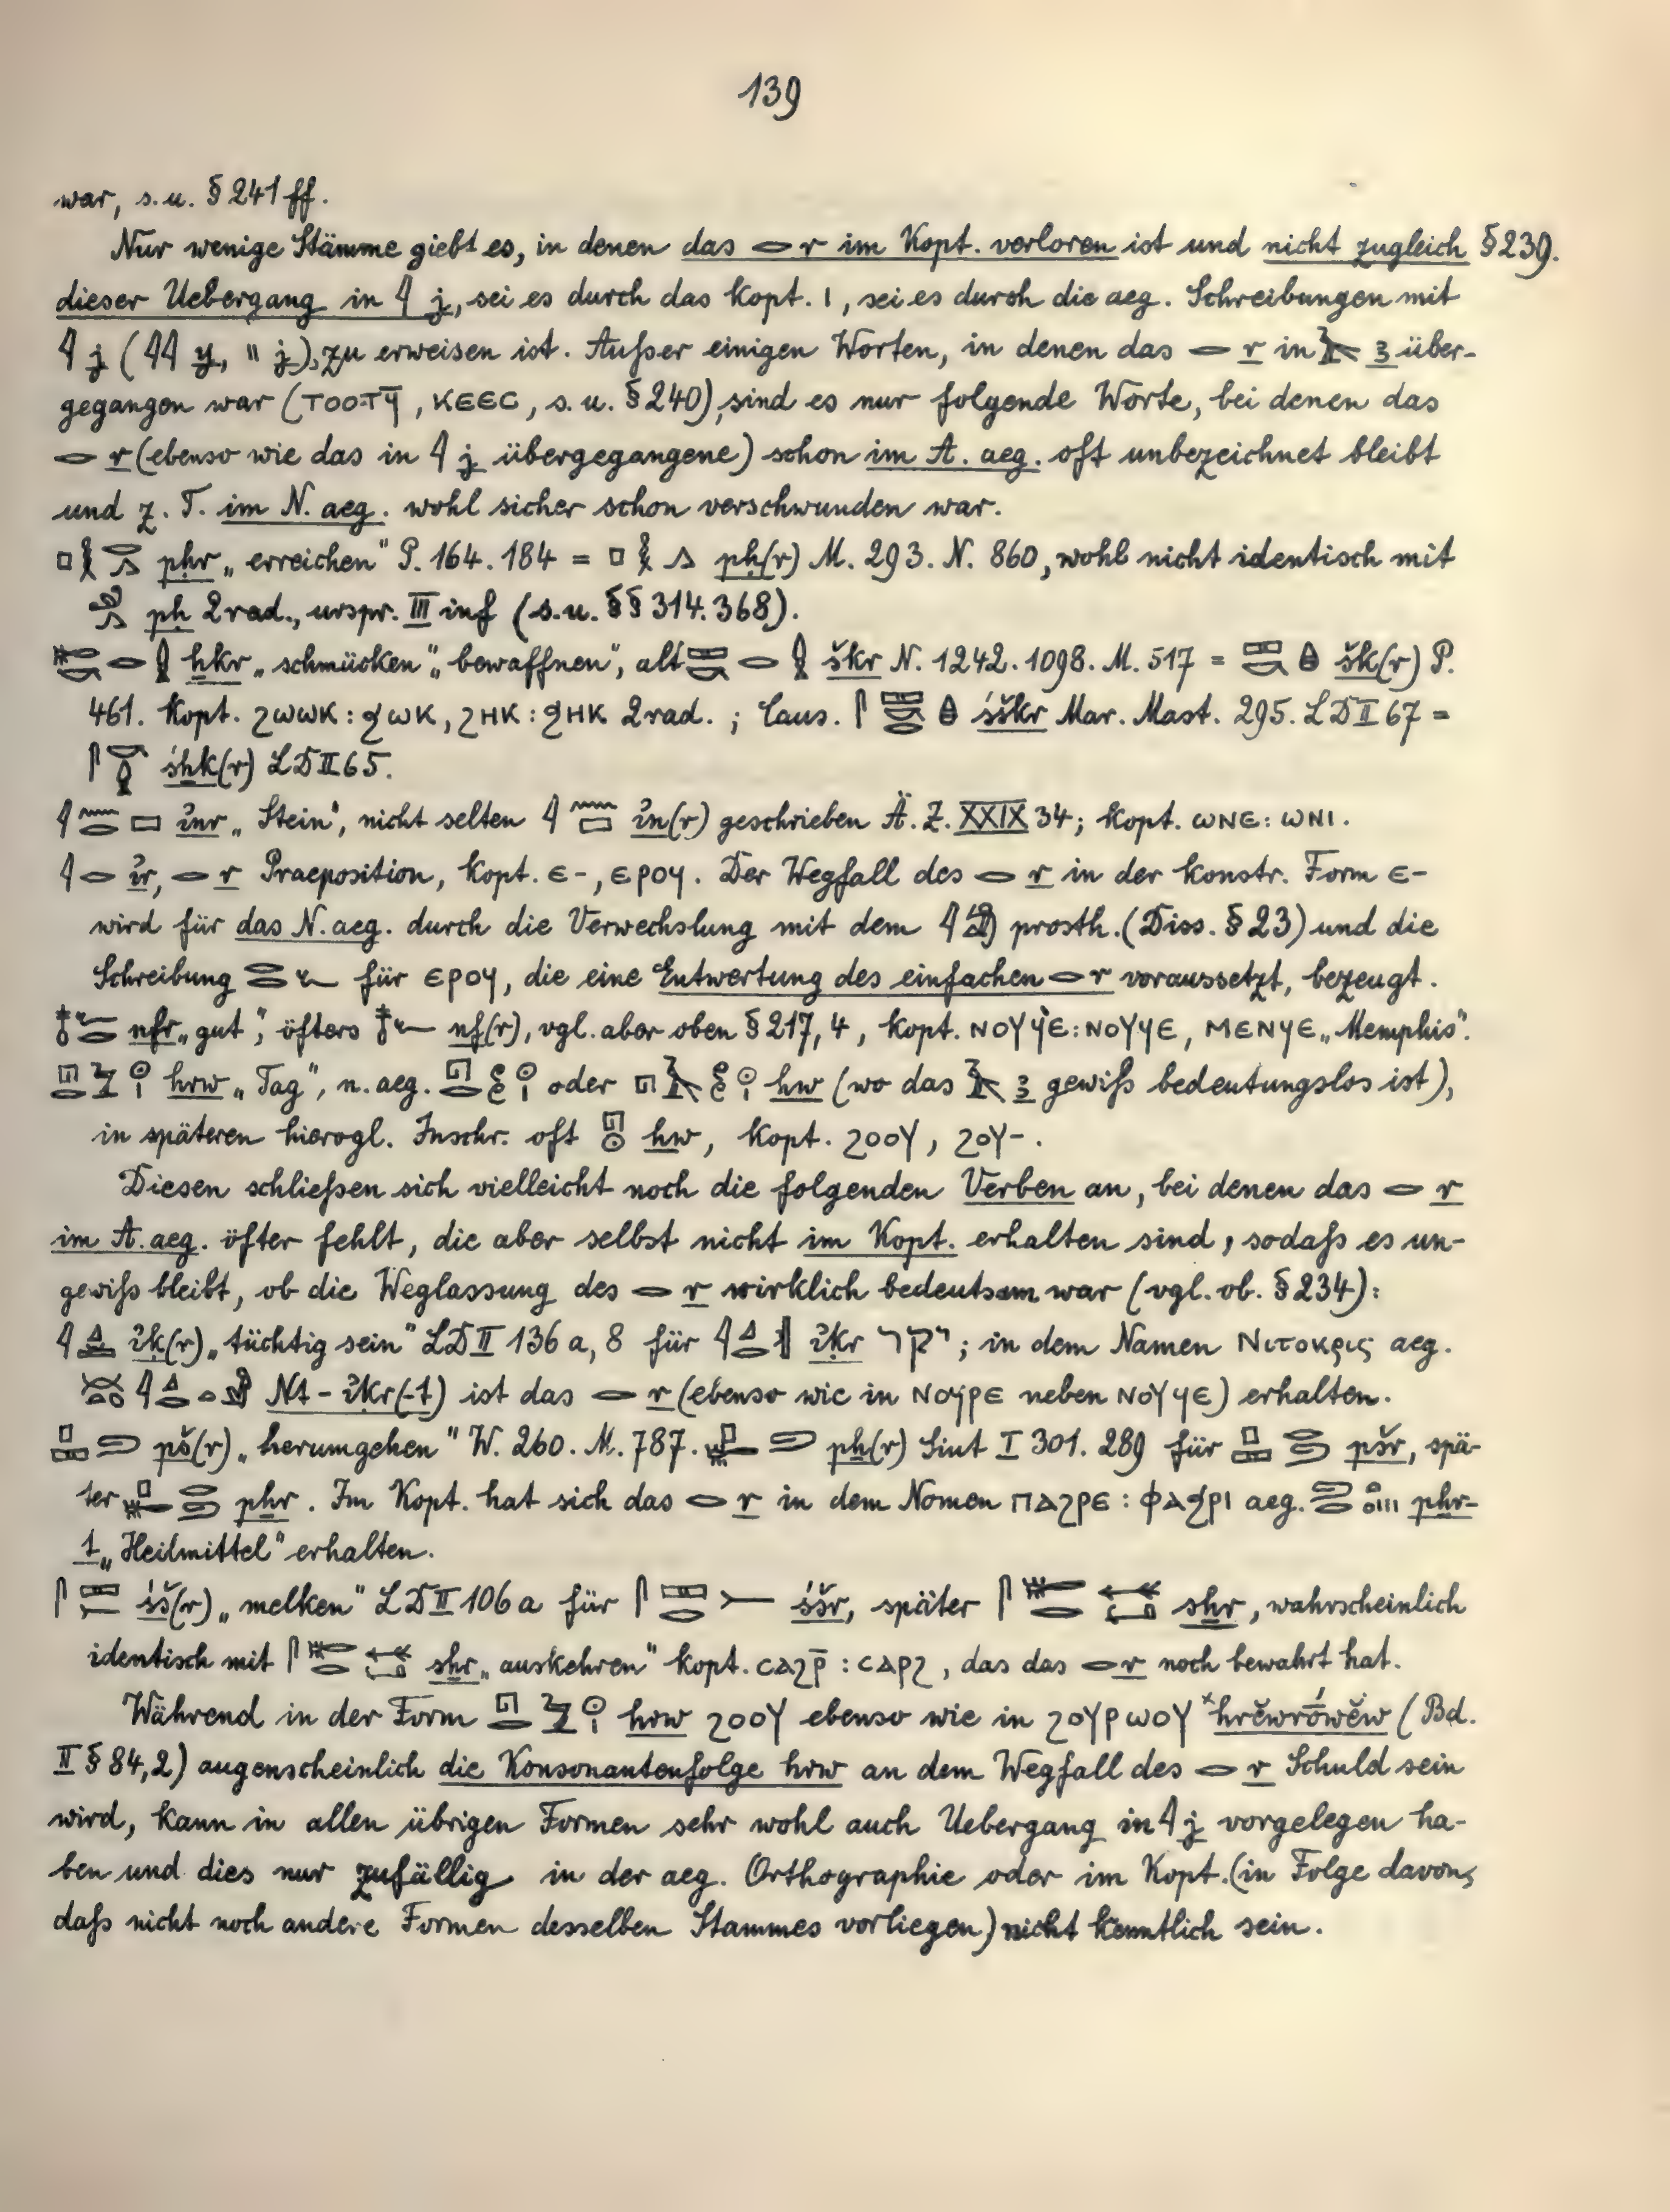 139
war, s. u. § 241 ff.
Nur wenige Stämme giebt es, in denen das 𓂋 r im Kopt. verloren ist und nicht zugleich § 239.
dieser Uebergang in 𓇋 j, sei es durch das Kopt. ı, sei es durch die aeg. Schreibungen mit
𓇋 j (𓇋𓇋 y, " j), zu erweisen ist. Außer einigen Worten, in denen das 𓂋 r in 𓄿 ꜣ über-
gegangen war (ⲧⲟⲟⲧϥ̄, ⲕⲉⲉⲥ, s. u. § 240), sind es nur folgende Worte, bei denen das
𓂋 r (ebenso wie das in 𓇋 j übergegangene) schon im A. aeg. oft unbezeichnet bleibt
und z. T. im N. aeg. wohl sicher schon verschwunden war.
𓊪𓎛𓂋𓂻 pḥr „erreichen" P. 164. 184 = 𓊪𓎛𓂻 pḥ(r) M. 293. N. 860, wohl nicht identisch mit
pḥ 2rad., urspr. III inf (s. u. §§ 314. 368).
ẖkr „schmücken", „bewaffnen", alt škr N. 1242. 1098. M. 517 = šk(r) P.
461. Kopt. ϩⲱⲱⲕ : ϧⲱⲕ, ϩⲏⲕ : ϧⲏⲕ 2rad.; Caus. śškr Mar. Mast. 295. LD II 67 =
śẖk(r) LD II 65.
𓇋𓈖𓂋𓈙 ı̓nr „Stein", nicht selten 𓇋𓈖𓈙 ı̓n(r) geschrieben Ä. Z. XXIX 34; Kopt. ⲱⲛⲉ : ⲱⲛⲓ.
𓇋𓂋 ı̓r, 𓂋 r Praeposition, Kopt. ⲉ-, ⲉⲣⲟϥ. Der Wegfall des 𓂋 r in der konstr. Form ⲉ-
wird für das N. aeg. durch die Verwechslung mit dem 𓇋𓀁 prosth. (Diss. § 23) und die
Schreibung 𓂋𓂋𓆑 für ⲉⲣⲟϥ, die eine Entwertung des einfachen 𓂋 r voraussetzt, bezeugt.
𓄤𓆑𓂋 nfr „gut", öfters 𓄤𓆑 nf(r), vgl. aber oben § 217, 4, Kopt. ⲛⲟⲩϥⲉ : ⲛⲟⲩϥⲉ, ⲙⲉⲛϥⲉ „Memphis".
hrw „Tag", n. aeg. oder hw (wo das 𓄿 ꜣ gewiß bedeutungslos ist),
in späteren hierogl. Inschr. oft 𓉔𓇳 hw, Kopt. ϩⲟⲟⲩ, ϩⲟⲩ-.
Diesen schließen sich vielleicht noch die folgenden Verben an, bei denen das 𓂋 r
im A. aeg. öfter fehlt, die aber selbst nicht im Kopt. erhalten sind, sodaß es un-
gewiß bleibt, ob die Weglassung des 𓂋 r wirklich bedeutsam war (vgl. ob. § 234):
ı̓ḳ(r) „tüchtig sein" LD II 136 a, 8 für ı̓ḳr יקר; in dem Namen Νιτοκρις aeg.
Nt - ı̓ḳr(-t) ist das 𓂋 r (ebenso wie in ⲛⲟϥⲣⲉ neben ⲛⲟⲩϥⲉ) erhalten.
pš(r) „herumgehen" W. 260. M. 787. pẖ(r) Siut I 301. 289 für pšr, spä-
ter pẖr. Im Kopt. hat sich das 𓂋 r in dem Nomen ⲡⲁϩⲣⲉ : ⲫⲁϧⲣⲓ aeg. pẖr-
t „Heilmittel" erhalten.
śš(r) „melken" LD II 106 a für śšr, später sẖr, wahrscheinlich
identisch mit sẖr „auskehren" Kopt. ⲥⲁϩⲣ̄ : ⲥⲁⲣϩ, das das 𓂋 r noch bewahrt hat.
Während in der Form hrw ϩⲟⲟⲩ ebenso wie in ϩⲟⲩⲣⲱⲟⲩ *hrĕwrṓwĕw (Bd.
II § 84,2) augenscheinlich die Konsonantenfolge hrw an dem Wegfall des 𓂋 r Schuld sein
wird, kann in allen übrigen Formen sehr wohl auch Uebergang in 𓇋 j vorgelegen ha-
ben und dies nur zufällig in der aeg. Orthographie oder im Kopt. (in Folge davon,
daß nicht noch andere Formen desselben Stammes vorliegen) nicht kenntlich sein.